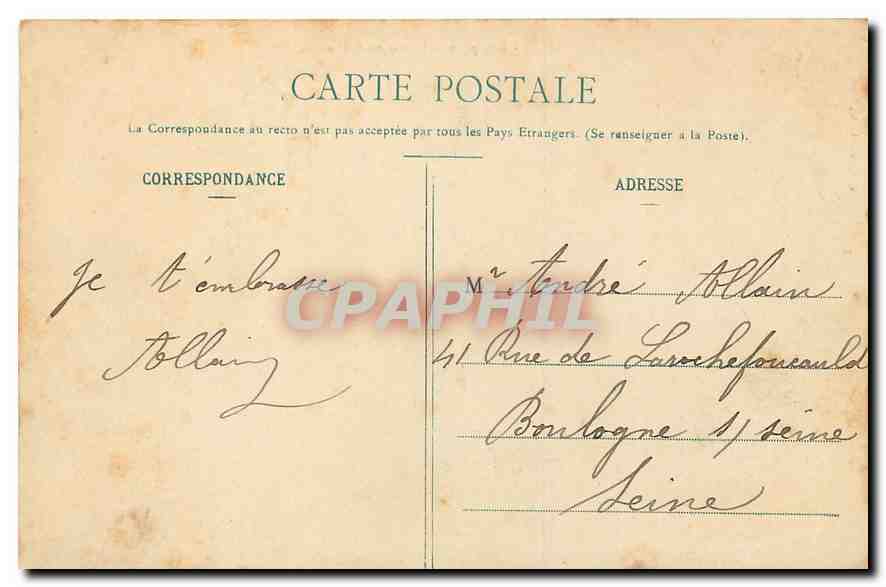 CARTE POSTALE
La Correspondance au recto n'est pas acceptée par tous les Pays Etrangers. (Se renseigner a la Poste).
CORRESPONDANCE
Je t'embrasse
Allain
ADRESSE
Mr André Allain
41 Rue de Larochefoucauld
Boulogne s/ seine
Seine
CPAPHIL